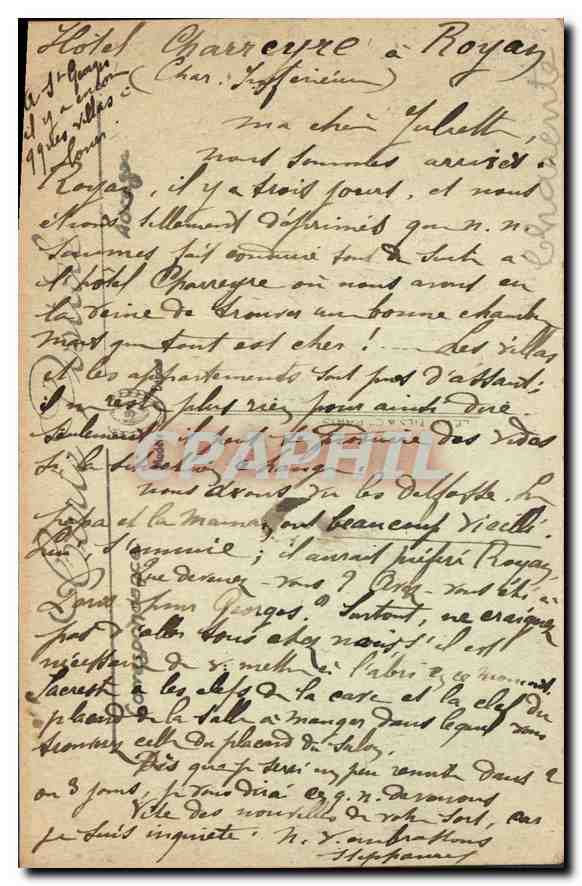 Hôtel Charreyre à Royan
(Char. Inférieure)
à St Georges
il y a encore
qques villas à
louer.
Charente
ma chère Juliette,
nous sommes arrivés à
Royan, il y a trois jours, et nous
étions tellement déprimés que n. n.
sommes fait conduire tout de suite à
l'hôtel Charreyre où nous avons eu
la veine de trouver une bonne chambre
mais que tout est cher ! Les villas
et les appartements sont pris d'assaut;
il ne reste plus rien pour ainsi dire.
Seulement, il va se produire des vides
si la situation change.
nous avons vu les Delfosse. Le
papa et la maman, ont beaucoup vieilli.
Lui s'ennuie; il aurait préféré Royan
Que devenez-vous ? Avez-vous été à
Paris pour Georges ? Surtout, ne craignez
pas d'aller tous chez nous s'il est
nécessaire de v. mettre à l'abri en ce moment.
Sacrest a les clefs de la cave et la clef du
placard de la salle à manger dans lequel vous
trouverez celle du placard du salon.
Dès que je serai un peu remise dans 2
ou 3 jours, je vous dirai ce q. n. devenons
Vite des nouvelles de votre sort, car
je suis inquiète. n. v. embrassons
Stéphanie
Carte Postale
Correspondance
Adresse
CPAPHIL